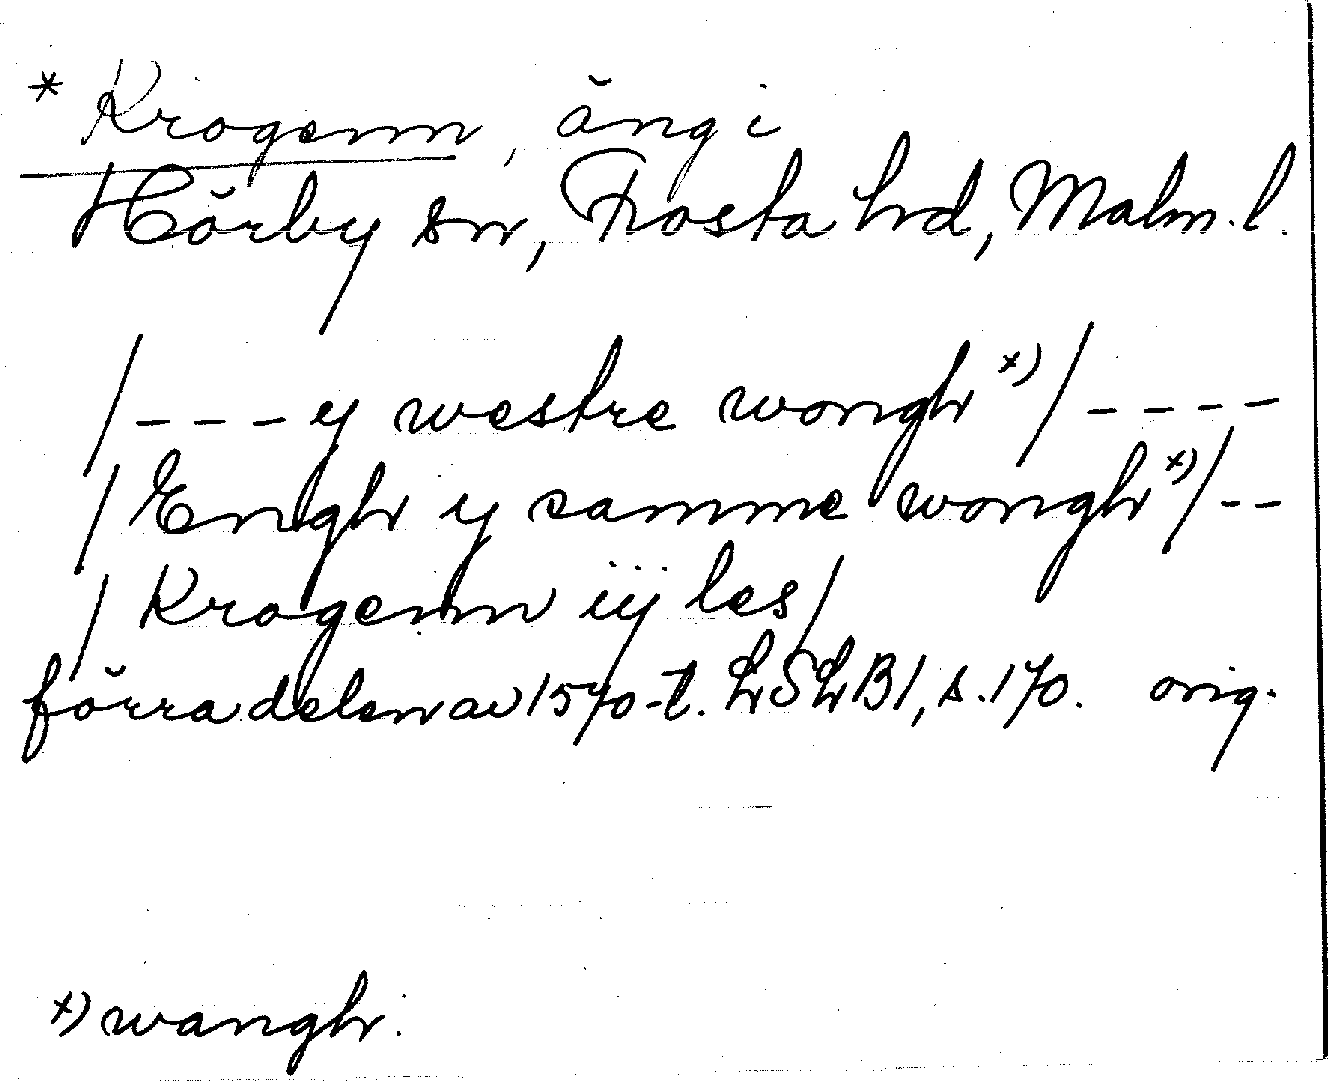 * Krogenn, äng i
Hörby sn, Frosta hd, Malm. l.
/---y westre wongh x)/----
/Engh y samme wongh x)/--
/Krogenn iij les/
förra delen av 1570-t. LSLB1, s. 170. orig.
x) wangh.